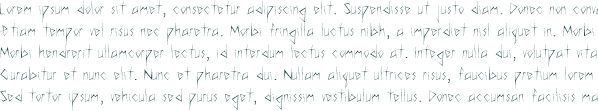 Lorem ipsum dolor sit amet, consectetur adipiscing elit. Suspendisse ut justo diam. Donec non conv
etiam tempor vel risus nec pharetra. Morbi fringilla luctus nibh, a imperdiet nisl aliquet in. Morbi
Morbi hendrerit ullamcorper lectus, id interdum lectus commodo at. Integer nulla dui, volutpat vita
Curabitur et nunc elit. Nunc et pharetra dui. Nullam aliquet ultrices risus, faucibus pretium lorem
Sed tortor ipsum, vehicula sed purus eget, dignissim vestibulum tellus. Donec accumsan facilisis ma